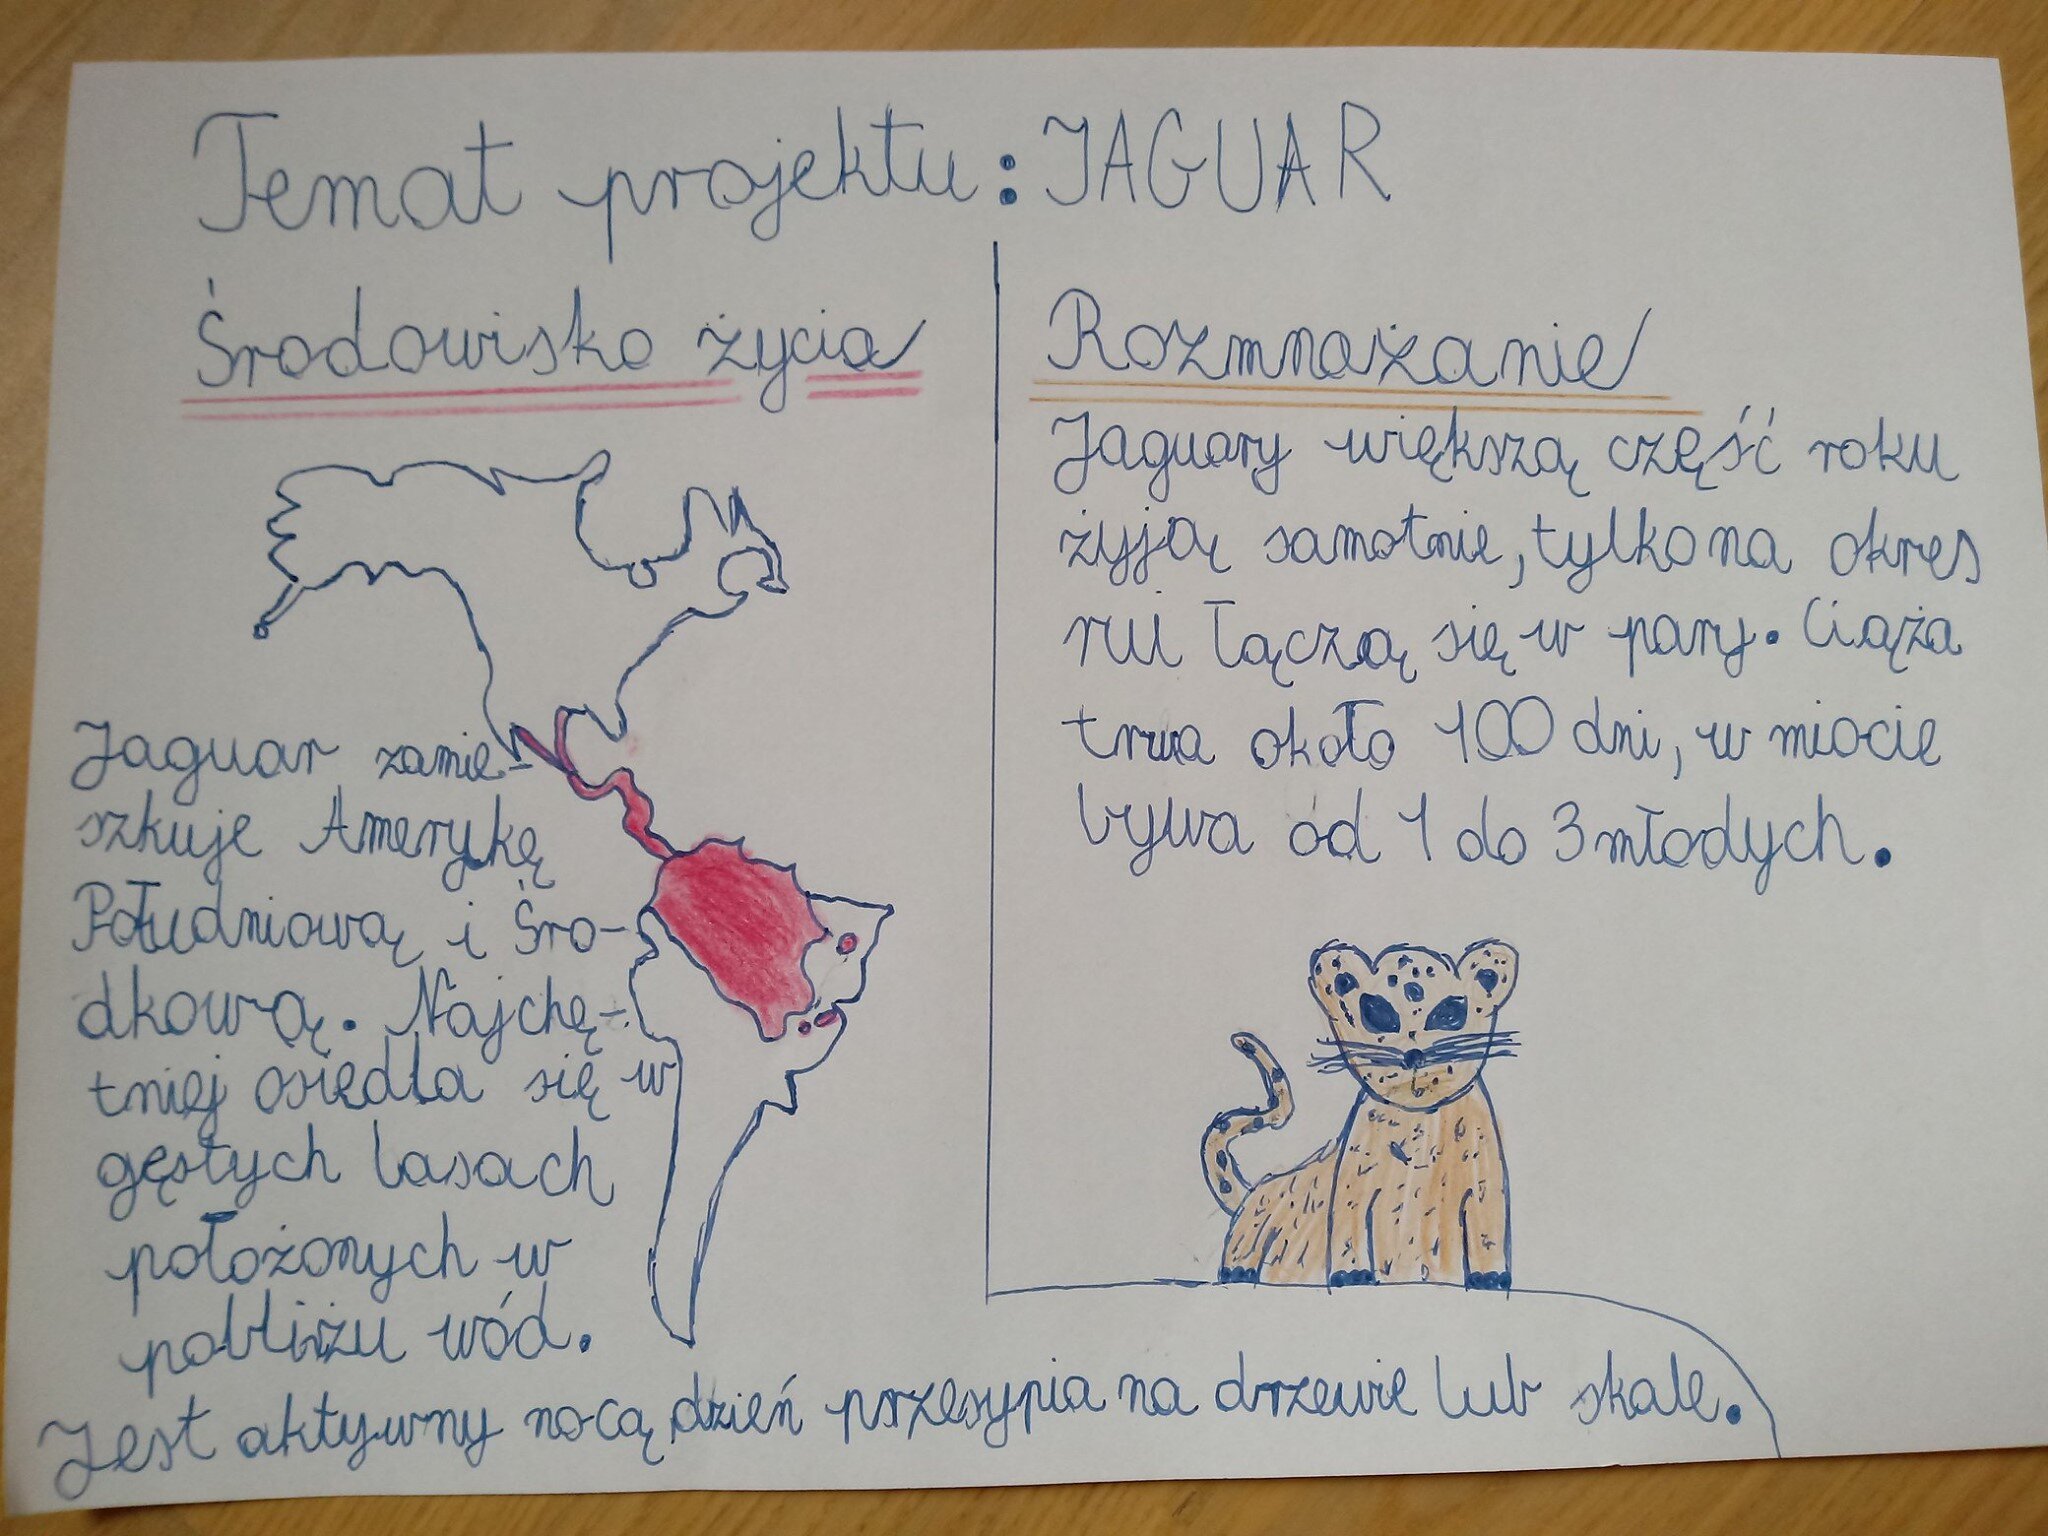 Temat projektu: JAGUAR
Środowisko życia
Jaguar zamie-
szkuje Amerykę
Południową i Śro-
dkową. Najchę-
tniej osiedla się w
gęstych lasach
położonych w
pobliżu wód.
Jest aktywny nocą dzień przesypia na drzewie lub skale.
Rozmnażanie
Jaguary większą część roku
żyją samotnie, tylko na okres
rui łączą się w pary. Ciąża
trwa około 100 dni, w miocie
bywa od 1 do 3 młodych.